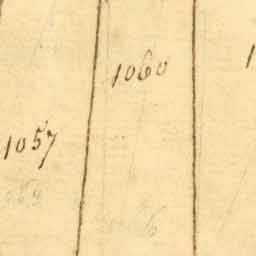 1060
1057